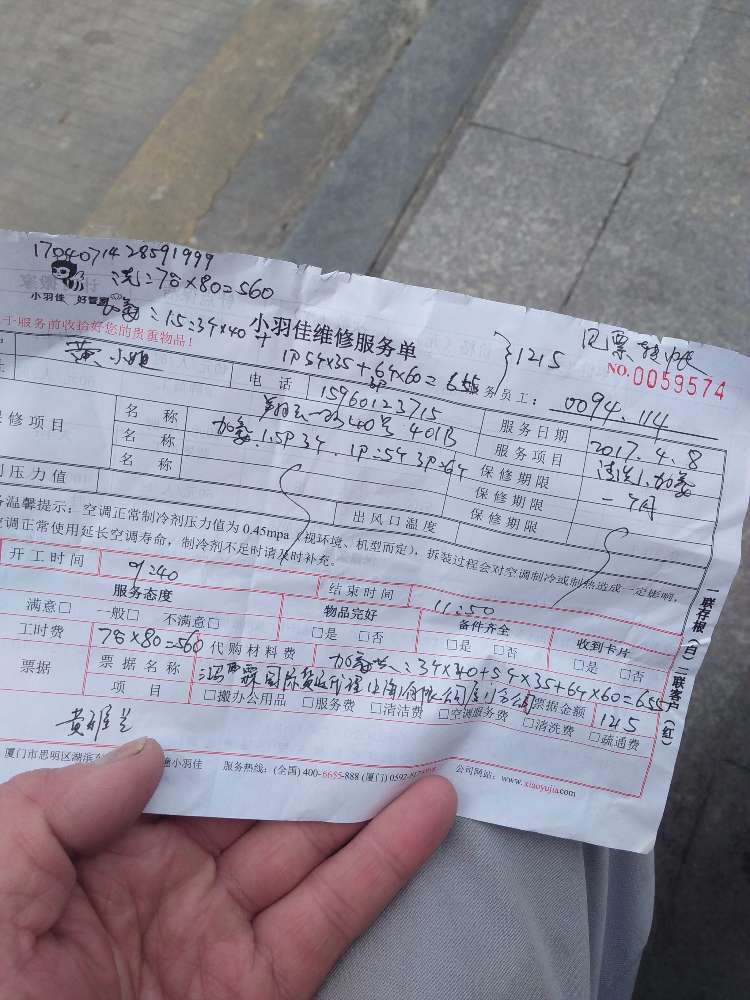 17040714 28591999
洗:7台×80=560
小羽佳 好管家
加氨:1.5=3个×40+
小羽佳维修服务单
1P5个×35+6个×60=655
3P
1215 因票 转帐
NO.0059574
于服务前收拾好您的贵重物品!
黄小姐
电话 15960123715
服务员工: 0094.114
名称 翔云一路40号401B
服务日期 2017.4.8
修项目
名称 加氨:1.5P3个. 1P=5个 3P=6个
服务项目 清洗、加氨
名称
保修期限 一个月
保修期限
保修期限
压力值
出风口温度
温馨提示:空调正常制冷剂压力值为0.45mpa(视环境、机型而定),拆装过程会对空调制冷或制热造成一定影响,
空调正常使用延长空调寿命,制冷剂不足时请及时补充。
开工时间 9:40
结束时间 11:50
服务态度 物品完好 备件齐全 收到卡片
满意□ 一般□ 不满意□ □是 □否 □是 □否 □是 □否
工时费 7台×80=560 代购材料费 加氨共:3个×40+5个×35+6个×60=655
票据 票据名称 国际货运代理(上海)有限公司厦门分公司 票据金额 1215
项目 □搬办公用品 □服务费 □清洁费 □空调服务费 □清洗费 □疏通费
一联存根(白) 二联客户(红)
厦门市思明区湖滨东 小羽佳 服务热线:(全国) 400-6655-888 (厦门) 0592- 公司网站: www.xiaoyujia.com